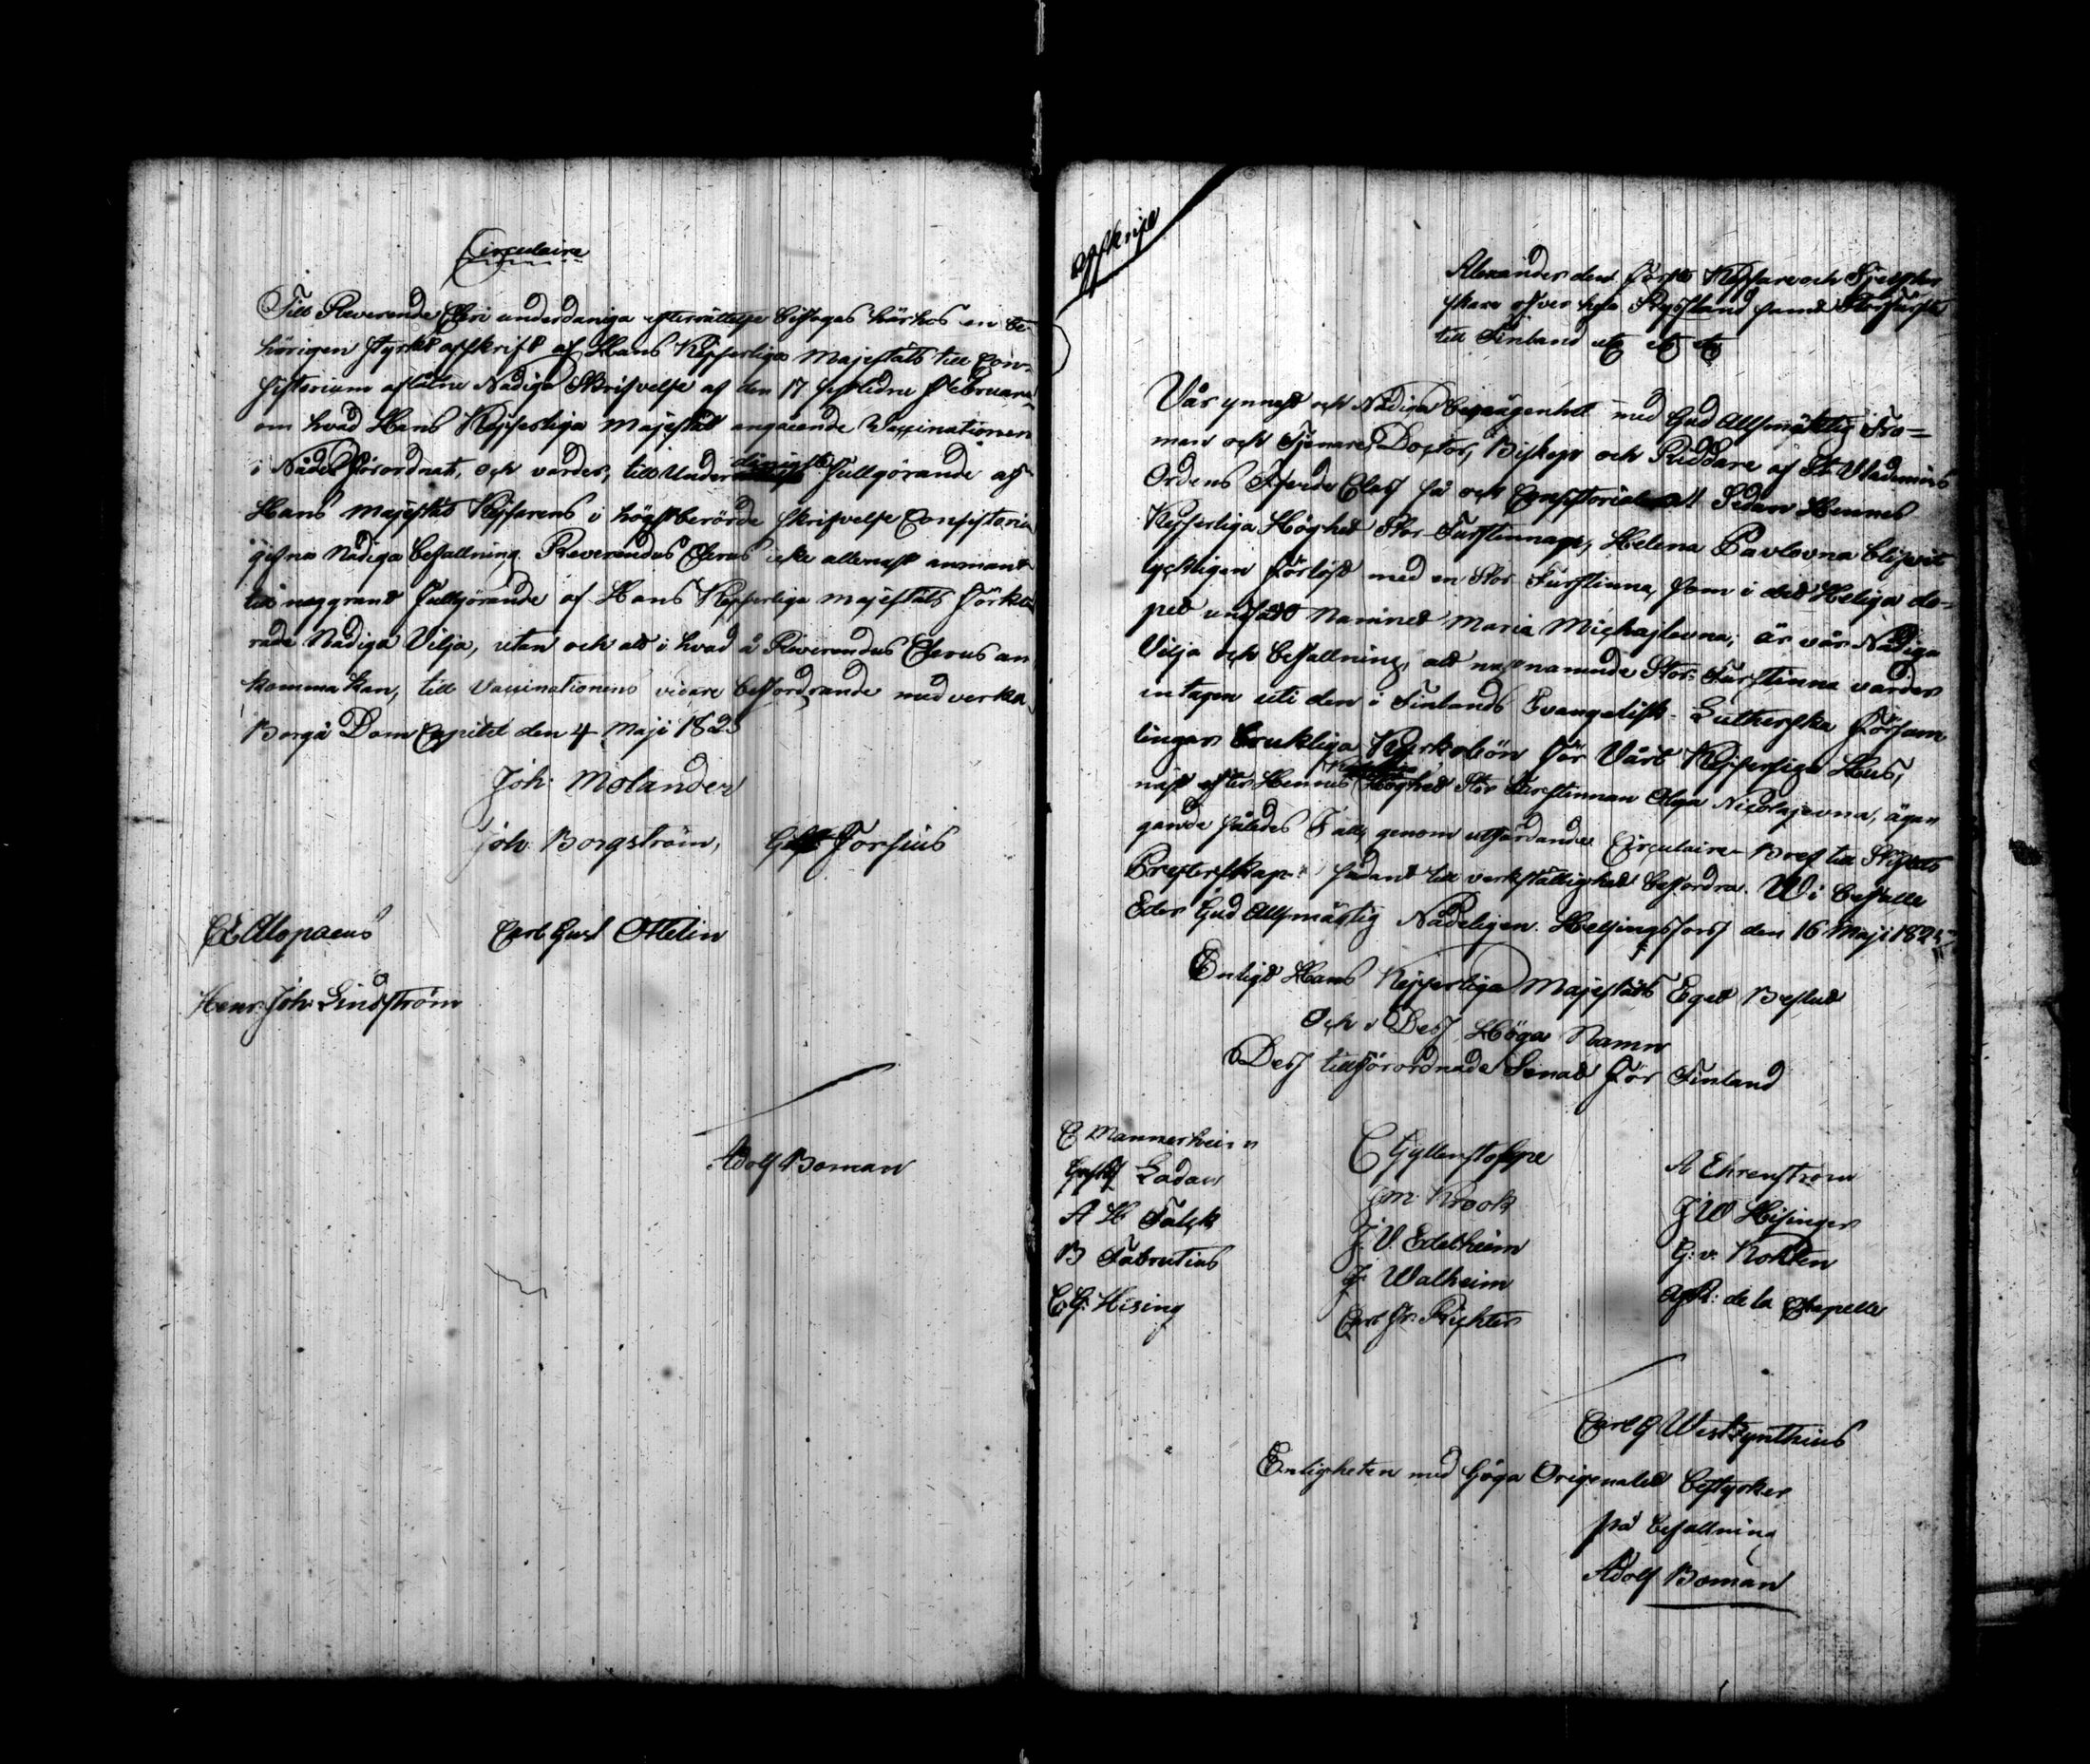 Circulaire
Till Reverende Cleri underdåniga efterrättelse bifogas härhos en be-
hörigen styrkt afskrift af Hans Kejserliga Majestäts till Con-
sistorium aflåtne Nådiga Skrifvelse af den 17 sistledne Februarii
om hvad Hans Kejserliga Majestät angående Vaccinationen
i Nåder förordnat, och varder, till Underdånigst fullgörande af
Hans Majestät Kejsarens i högstberörde skrifvelse Consistorio
gifna Nådiga befallning Reverendus Clerus icke allenast anmant
till noggrant fullgörande af Hans Kejserliga Majestäts förkla
rade Nådiga Vilja, utan och att i hvad å Reverendus Clerus an
komma kan, till Vaccinationens vidare befordrande medverka
Borgå Dom Capitel den 4 Maji 1825
Joh: Molander
Joh: Borgström, Gust: Forsius
Alopaeus Carl Gust Ottelin
Henr: Joh: Lindström
Adolf Boman
Afskrift
Alexander den Förste Kejsare och Sjelfher
skare öfver hela Ryssland samt Storfurste
till Finland etc etc etc
Vår ynnest och Nådiga benägenhet med Gud Allsmäktig Tro=
man och Tjenare, Doctor, Biskop och Riddare af St Vladimirs
Ordens Fjerde Class så och Consistorial Sedan Hennes
Kejserliga Höghet Stor-Furstinnan, Helena Pavlovna blifvit
lyckligen förlöst med en Stor Furstinna, som i det Heliga do=
pet undfått Namnet Maria Michajlovna; är vår Nådiga
Vilja och befallning, att nyssnamnde Stor-Furstinna varder
intagen uti den i Finlands Evangelisk-Lutherska Försam
lingar brukliga Kyrkobön för Vårt Kejserliga Hus,
näst efter Hennes Kejserliga Höghet Stor Furstinnan Olga Nicolajevna, ägan
gande således I att, genom utfärdande Circulaire-Bref till Stiftets
Presterskap sådant till verkställighet befordra. Wi befalle
Eder Gud Allsmäktig Nådeligen. Helsingfors den 16 Maji 1825
Enligt Hans Kejserliga Majestäts Eget Beslut
och i Dess Höga Namn
Dess tillförordnade Senat för Finland
C Mannerheim C Gyllenstolpe A Ehrenström
Gust Ladau M. Krook J W Hisinger
A H Falck J. V. Edelheim G: v: Kothen
B Fabritius J. Walheim A: R: de la Chapelle
C G: Hising Carl Fr. Richter
Carl G Westzynthius
Enligheten med höga Originalet bestyrker
på befallning
Adolf Boman